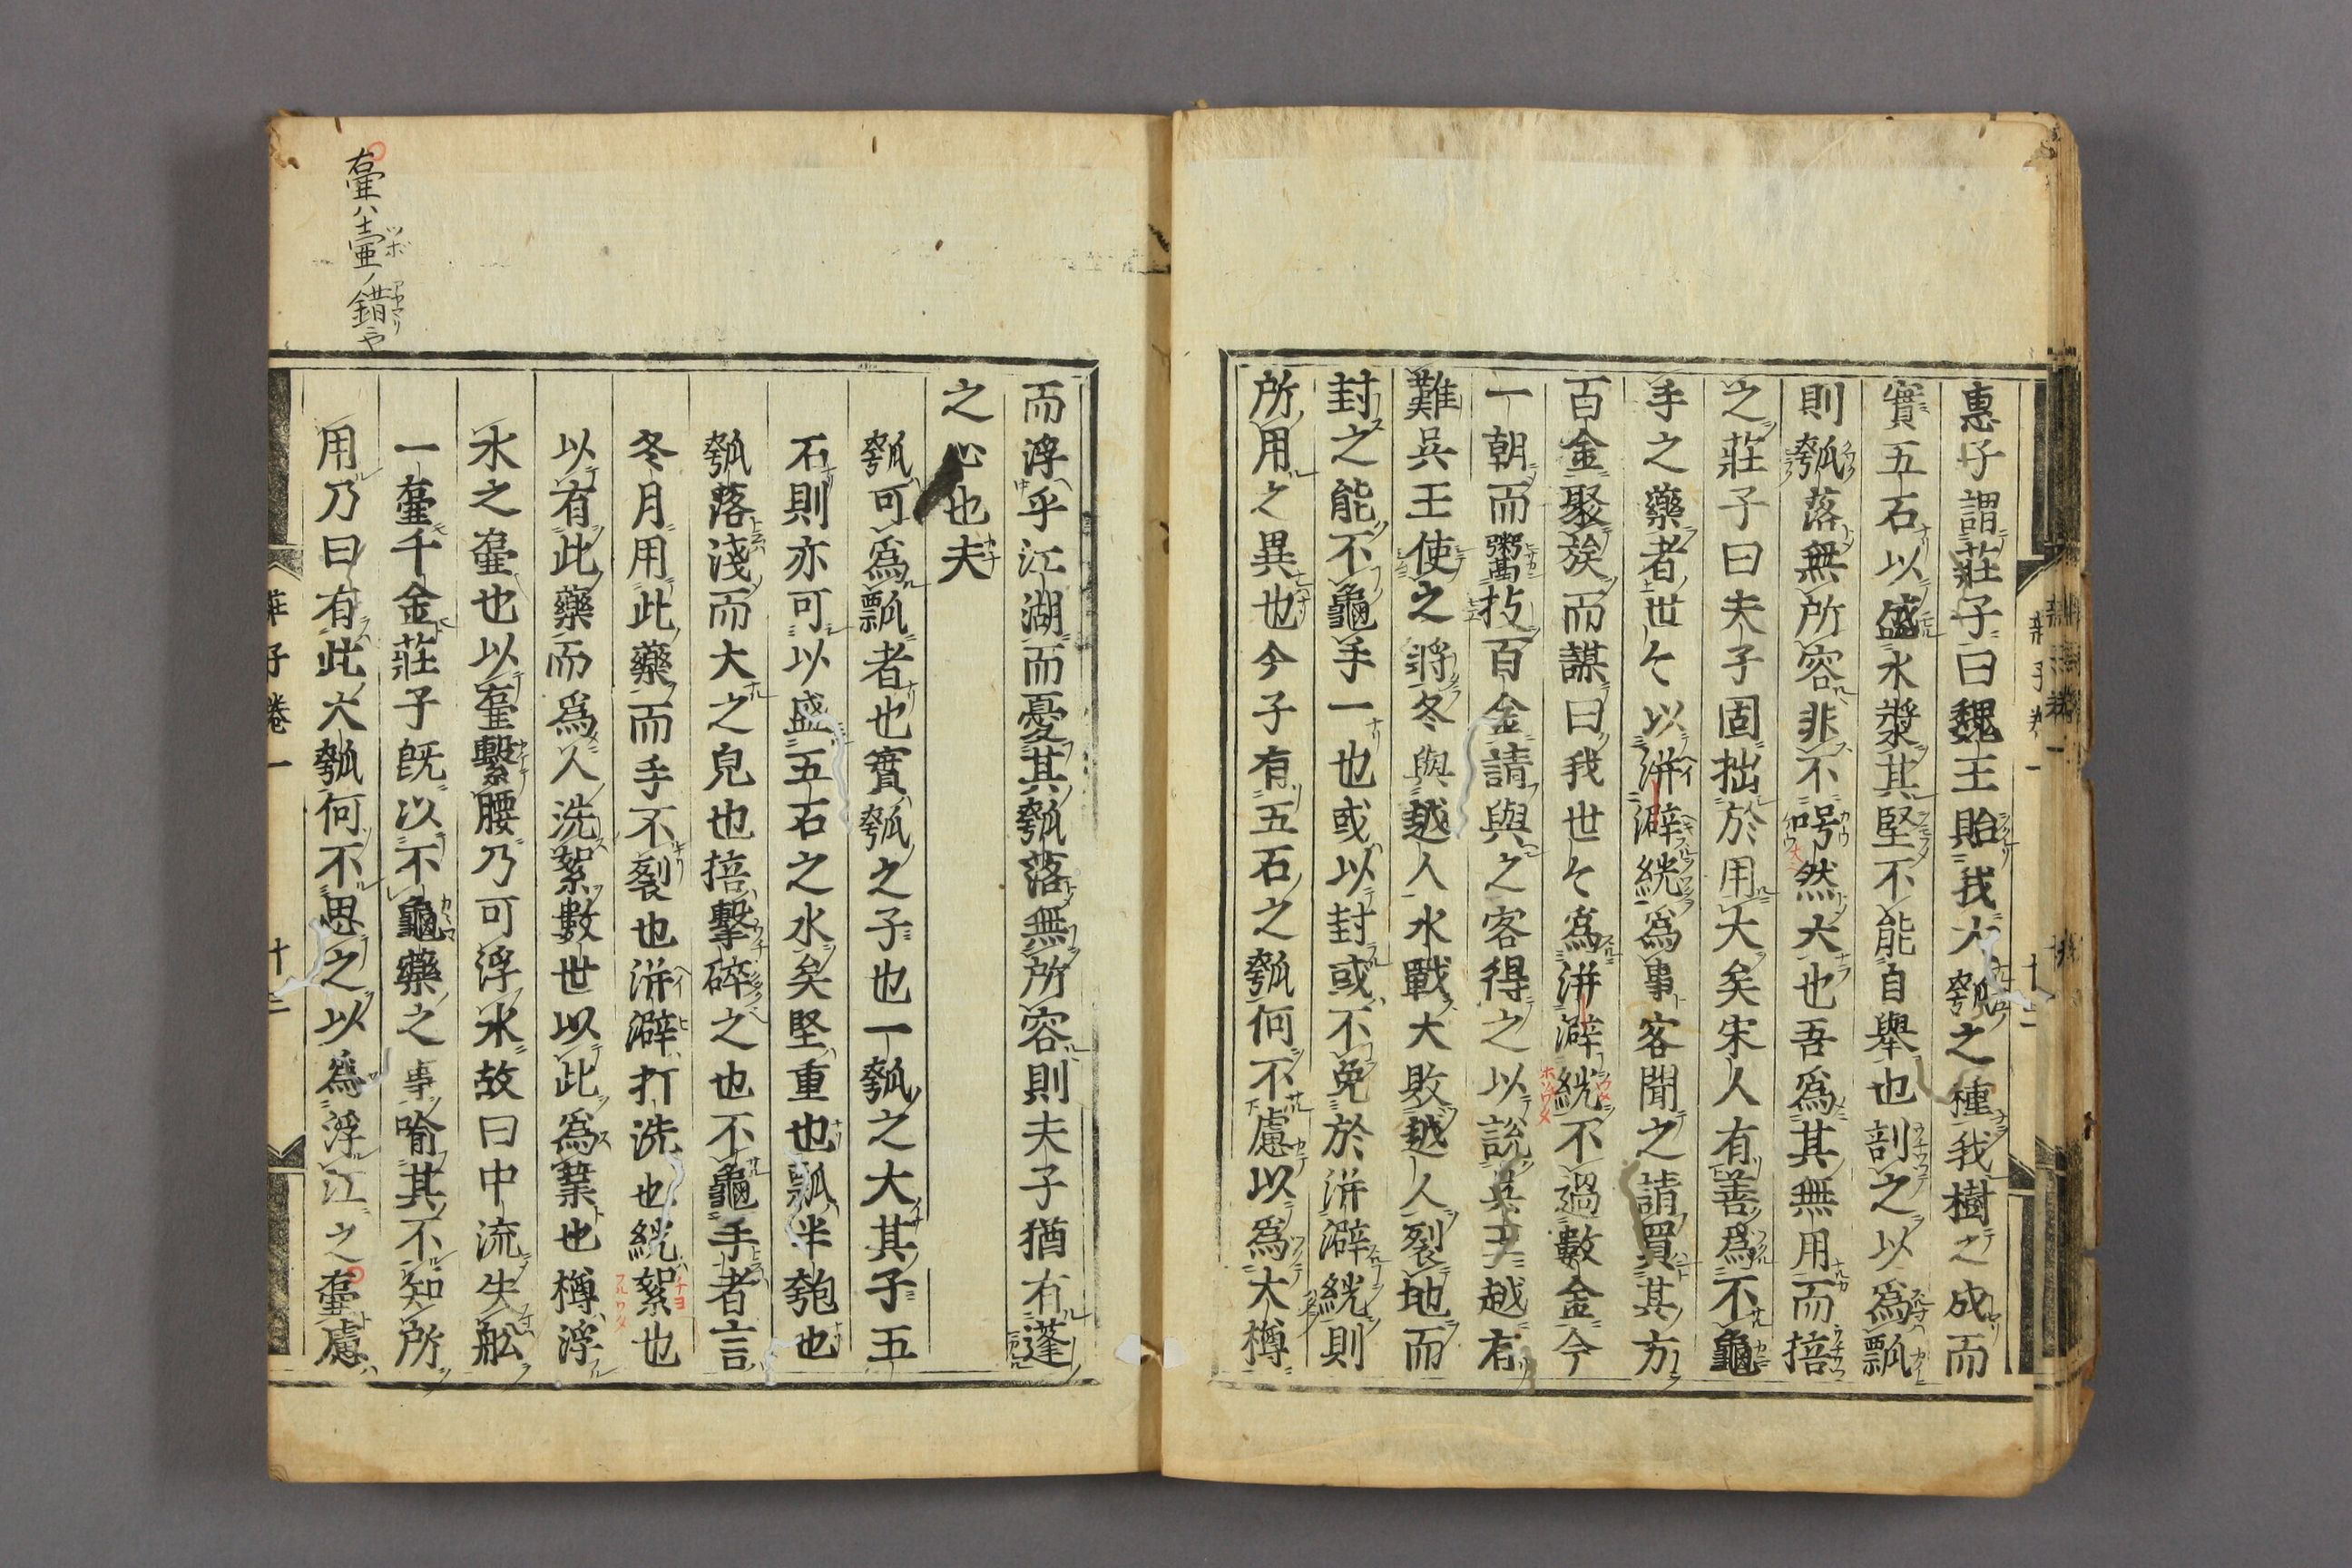 惠子謂莊子曰魏王貽我大瓠之種我樹之成而
實五石以盛水漿其堅不能自舉也剖之以爲瓢
則瓠落無所容非不呺然大也吾爲其無用而掊
之莊子曰夫子固拙於用大矣宋人有善爲不龜
手之藥者世〻以洴澼絖爲事客聞之請買其方
百金聚族而謀曰我世〻爲洴澼絖不過數金今
一朝而鬻技百金請與之客得之以說吳王越有
難吳王使之將冬與越人水戰大敗越人裂地而
封之能不龜手一也或以封或不免於洴澼絖則
所用之異也今子有五石之瓠何不慮以爲大樽
而浮乎江湖而憂其瓠落無所容則夫子猶有蓬
之心也夫
瓠可爲瓢者也實瓠之子也一瓠之大其子五
石則亦可以盛五石之水矣堅重也瓢半匏也
瓠落淺而大之皃也掊擊碎之也不龜手者言
冬月用此藥而手不裂也洴澼打洗也絖絮也
以有此藥而爲人洗絮數世以此爲業也樽浮
水之壷也以壷繫腰乃可浮水故曰中流失舩
一壷千金莊子旣以不龜藥之事喻其不知所
用乃曰有此大瓠何不思之以爲浮江之壷慮
壷ハ壺ノ錯ニヤ
莊子卷一
十二